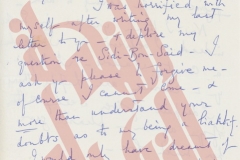 I was horrified, with
myself after writing my last
letter to you - & deplore my
question re Sidi-Bou-Said - I
ask you please forgive me -
of course I can't come - &
more than understand your
doubts as to my being a
I would only have dreamt of